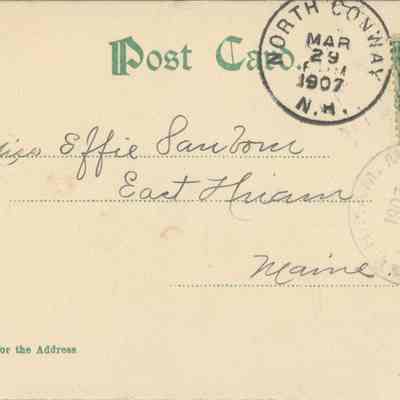 Post Card.
NORTH CONWAY
MAR
29
1907
N.H.
Miss Effie Sanborn
East Hiram
Maine.
for the Address